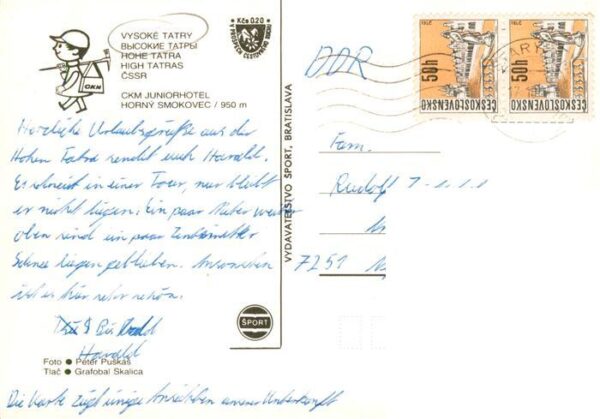 VYSOKÉ TATRY
ВЫСОКИЕ ТАТРЫ
HOHE TATRA
HIGH TATRAS
ČSSR
CKM JUNIORHOTEL
HORNÝ SMOKOVEC / 950 m
CKM
Kčs 0,20
V PROSPECH CESTOVNÉHO RUCHU
50h
ČESKOSLOVENSKO
50h
ČESKOSLOVENSKO
TATRY
DDR
Herzliche Urlaubsgrüße aus der
Hohen Tatra sendet euch Harald.
Es schneit in einer Tour, nur bleibt
er nicht liegen. Ein paar Meter weiter
oben sind ein paar Zentimeter
Schnee liegen geblieben. Ansonsten
ist es hier sehr schön.
Bis bald
Harald
Fam.
Rudolf
7251
VYDAVATEĽSTVO ŠPORT, BRATISLAVA
ŠPORT
Foto ● Peter Puškáš
Tlač ● Grafobal Skalica
Die Karte zeigt einige Ansichten unserer Unterkunft